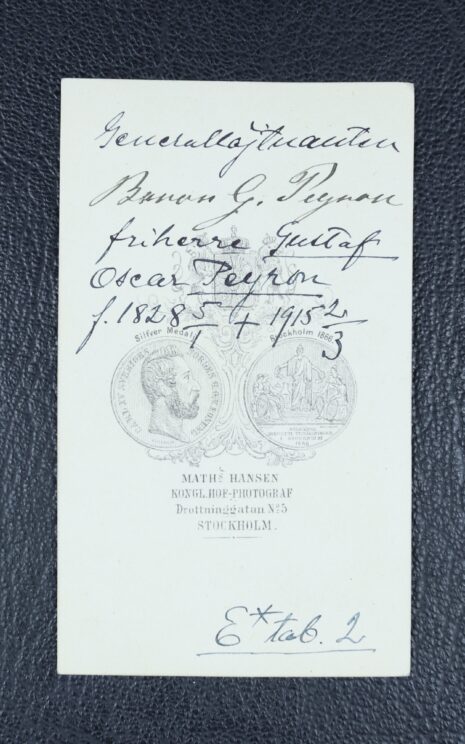 Generallöjtnanten
Baron G. Peyron
friherre Gustaf
Oscar Peyron
f. 1828 5/1 + 1915 2/3
Silfver Medalj
Stockholm 1866
CARL XV SVERIGES
MATHS HANSEN
KONGL. HOF-PHOTOGRAF
Drottninggatan No 5
STOCKHOLM.
E* tab. 2